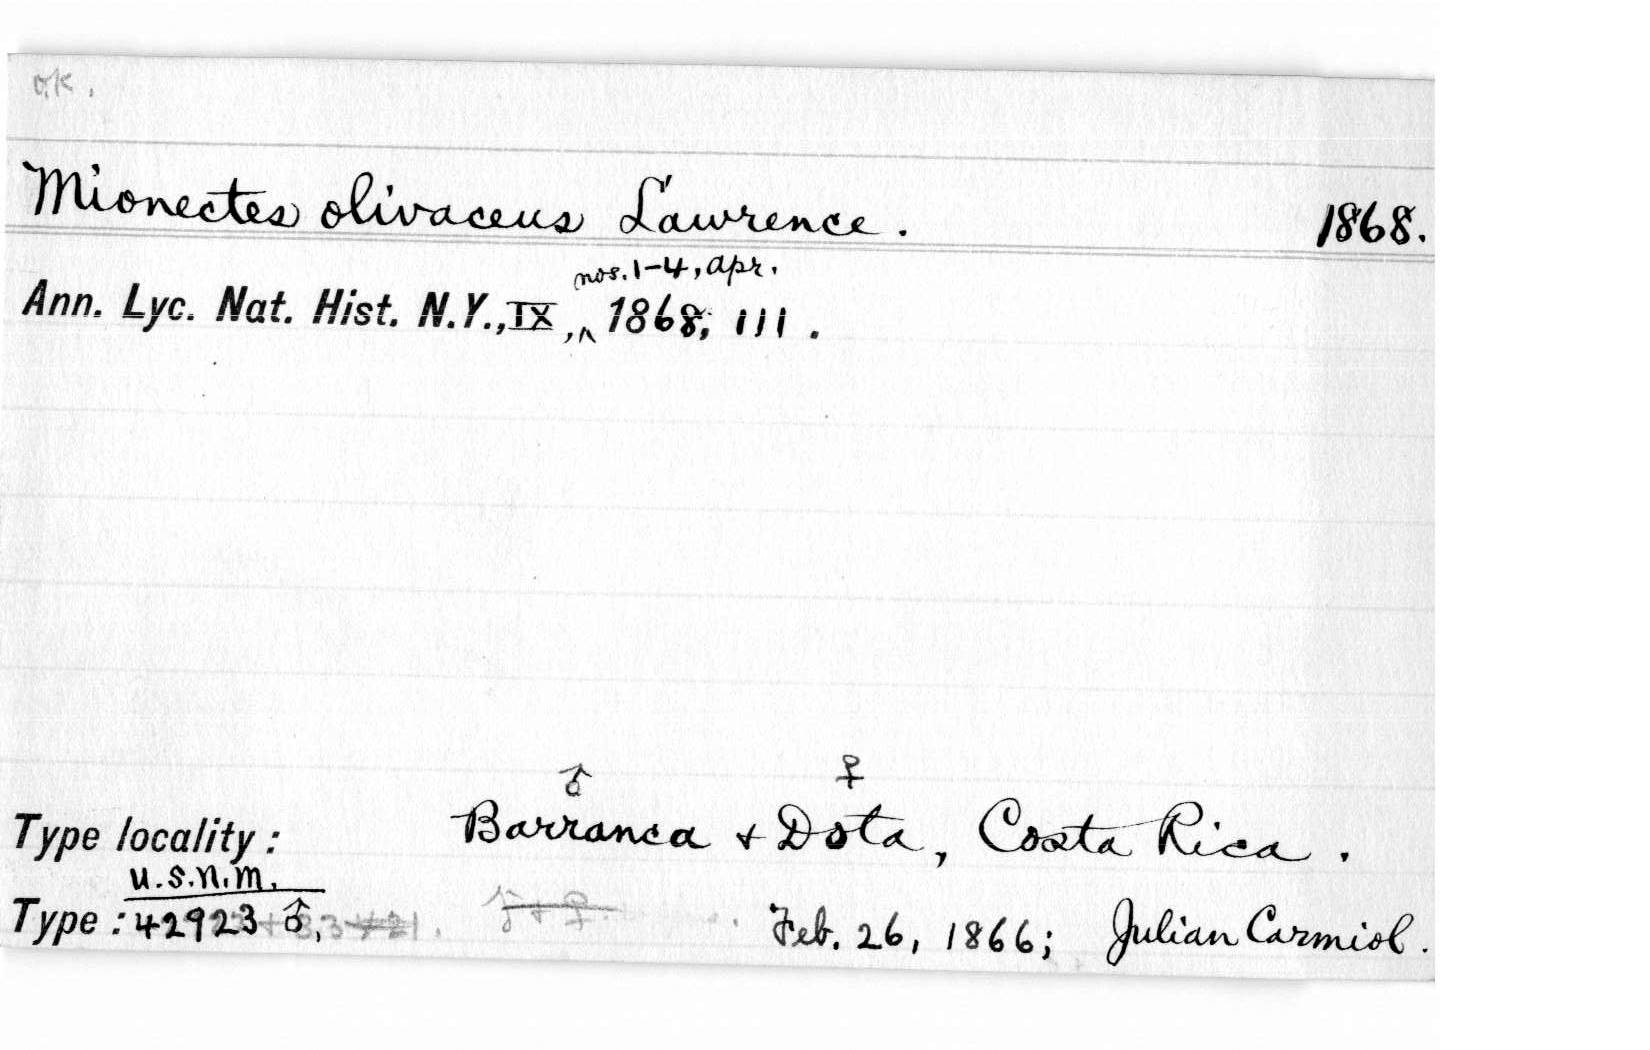 o.k.
Mionectes olivaceus Lawrence. 1868.
nos. 1-4, Apr.
Ann. Lyc. Nat. Hist. N.Y., IX, ^ 1868, 111.
♂ ♀
Barranca & Dota, Costa Rica.
Type locality:
U.S.N.M.
Type: 42923 ♂, ♂ + ♀. Feb. 26, 1866; Julian Carmiol.